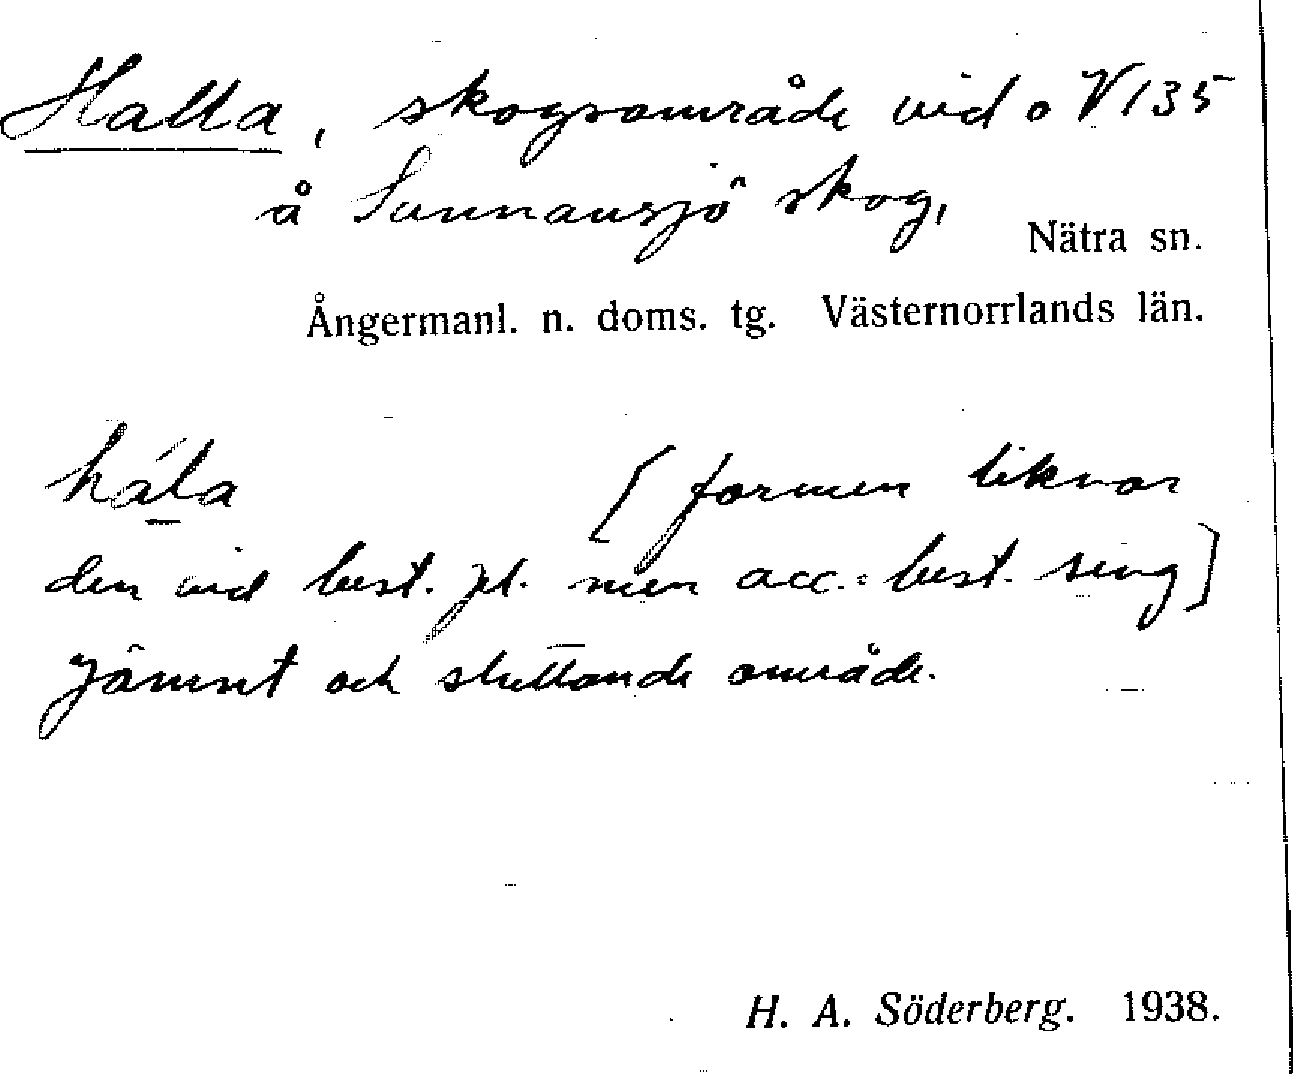 Halla, skogsområde vid o V 135
å Sunnansjö skog,
Nätra sn.
Ångermanl. n. doms. tg. Västernorrlands län.
hála [formen liknar
den vid best. pl. men acc. = best. sing]
Jämnt och sluttande område.
H. A. Söderberg. 1938.